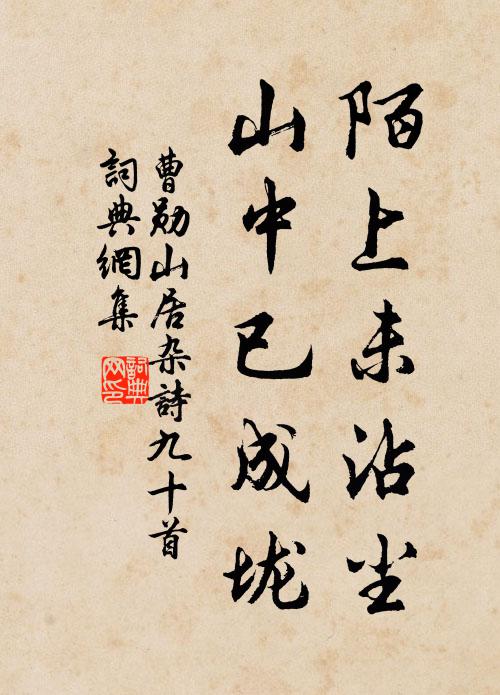 陌上未沾尘
山中已成垅
曹勋山居杂詩九十首
詞典網集
詞典网印